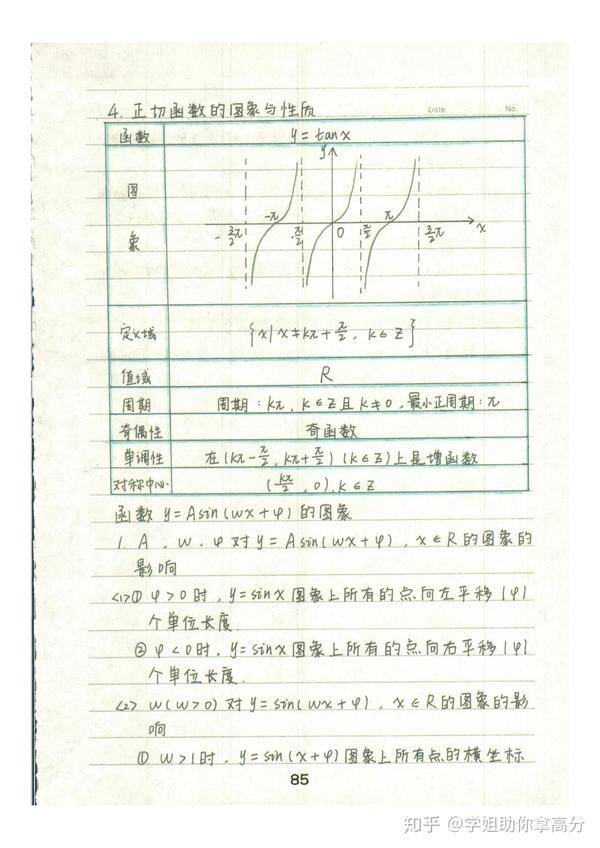 4. 正切函数的图象与性质
Date No.
函数 y = tanx
图象
y
-π π
-3/2π -π/2 0 π/2 3/2π x
定义域 {x|x≠kπ+π/2, k∈Z}
值域 R
周期 周期:kπ, k∈Z且k≠0,最小正周期:π
奇偶性 奇函数
单调性 在(kπ-π/2, kπ+π/2)(k∈Z)上是增函数
对称中心 (kπ/2, 0), k∈Z
函数 y=Asin(wx+φ)的图象
1. A, w, φ对y=Asin(wx+φ), x∈R的图象的
影响
<1>① φ>0时, y=sinx图象上所有的点向左平移|φ|
个单位长度.
② φ<0时, y=sinx图象上所有的点向右平移|φ|
个单位长度.
<2> w(w>0)对y=sin(wx+φ), x∈R的图象的影
响
① w>1时, y=sin(x+φ)图象上所有点的横坐标
85
知乎 @学姐助你拿高分